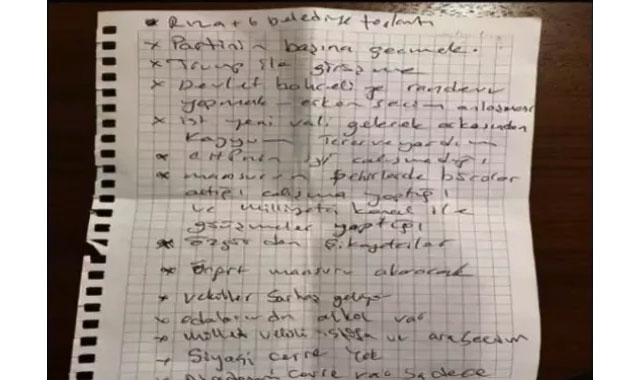 * Rıza + 6 belediye toplantı
* Partinin başına geçmek.
* Trump ile görüşme
* Devlet bahçeli ye randevu
yapmak - erken seçim anlaşması
* ist yeni vali gelecek arkasından
Kayyum
* CHPnin iyi çalışmadığı
* mansurun şehirlerde bürolar
açtığı çalışma yaptığı
ve milliyetçi kanal ile
görüşmeler yaptığı
* Özgür den şikayetçiler
* mansuru alacak
* vekiller Sarhoş geliyor
* odalarında alkol var
* millet vekili ve ara seçim
- Siyasi çevre yok
çevre var sadece